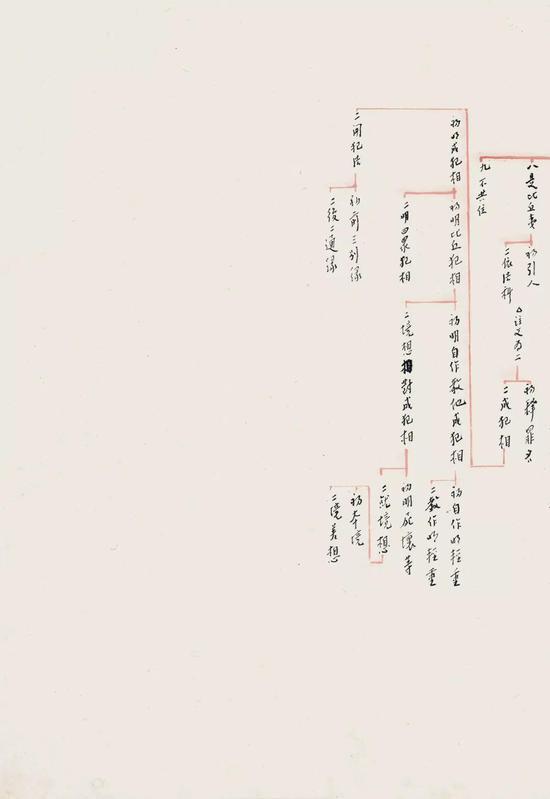 八是比丘夷
九不共住
初引人
二依法科
△註文為二
初釋罪名
二成犯相
初明成犯相
二開犯法
初明比丘犯相
二明四眾犯相
初前三別緣
二後二通緣
初明自作教他成犯相
二境想對成犯相
初自作明輕重
二教作明輕重
初明死壞等
二就境想
初本境
二境差想